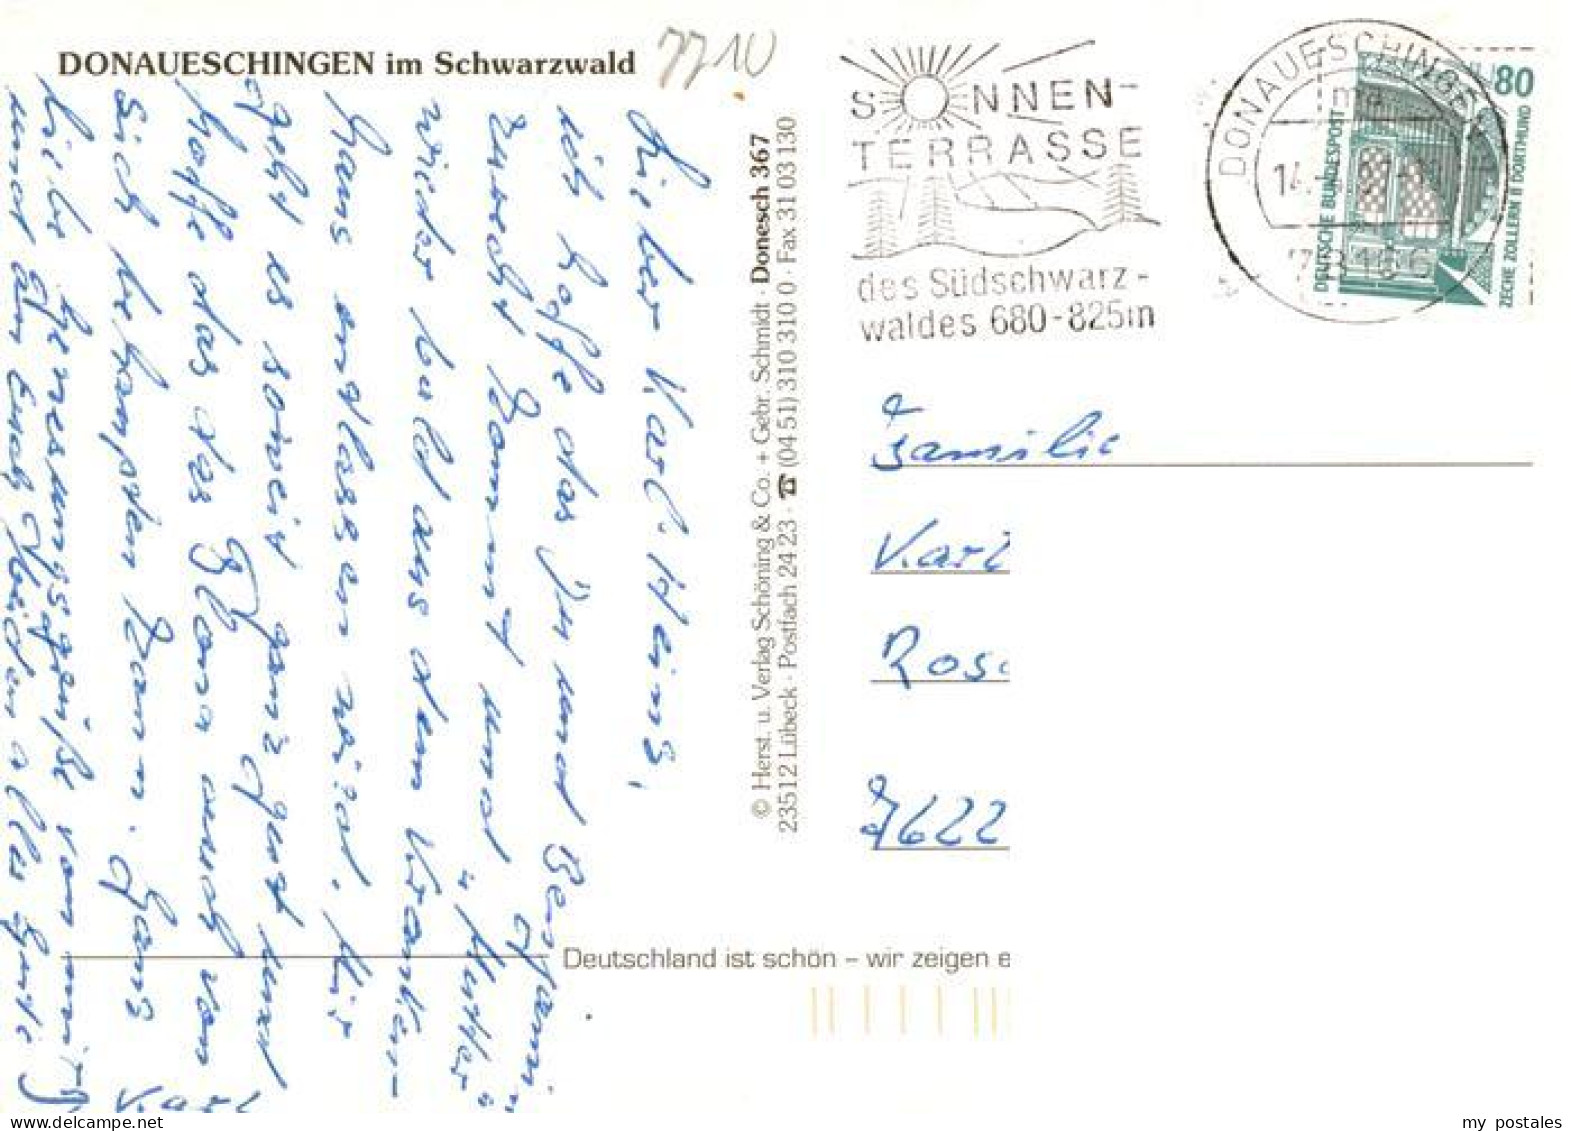 DONAUESCHINGEN im Schwarzwald
7710
Lieber Karl-Heinz,
ich hoffe das Du und Benjamin
zurecht kommt und "Mutter"
wieder bald aus dem Kranken-
haus entlassen wird. Mir
geht es soweit ganz gut und
hoffe das das auch von
Euch behaupten kann. Ganz
liebe Genesungsgrüße von mir
und an Euch Beiden alles Gute!
Karl
© Herst. u. Verlag Schöning & Co. + Gebr. Schmidt · Donesch 367
23512 Lübeck · Postfach 24 23 · ☎ (04 51) 310 310 0 · Fax 31 03 130
SONNEN-
TERRASSE
des Südschwarz-
waldes 680-825m
DONAUESCHINGEN
80
DEUTSCHE BUNDESPOST
ZECHE ZOLLERN II DORTMUND
Familie
Karl
Ros
7622
Deutschland ist schön – wir zeigen e
my postales